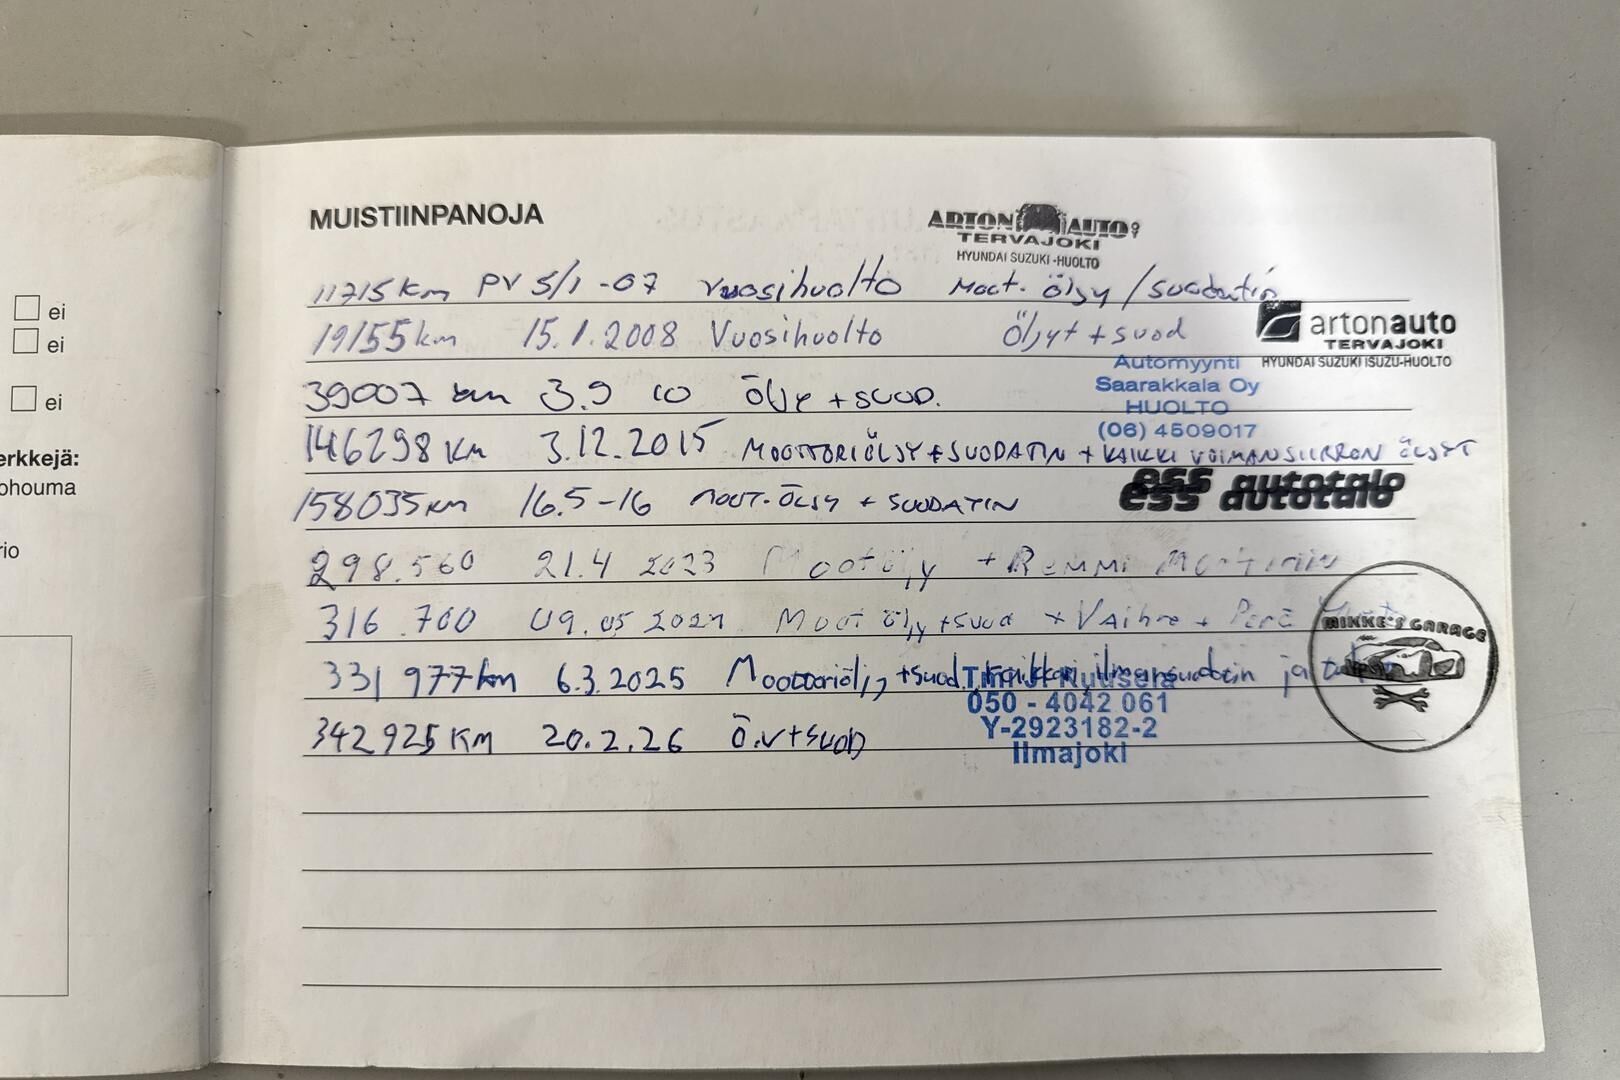 MUISTIINPANOJA
ARTON AUTO OY
TERVAJOKI
HYUNDAI SUZUKI -HUOLTO
11715 km PV 5/1 -07 Vuosihuolto Moot. öljy / suodatin
19155 km 15.1.2008 Vuosihuolto Öljyt + suod
artonauto
TERVAJOKI
HYUNDAI SUZUKI ISUZU-HUOLTO
Automyynti
Saarakkala Oy
HUOLTO
(06) 4509017
39007 km 3.9 10 ÖLJY + SUOD.
146298 KM 3.12.2015 MOOTTORIÖLJY + SUODATIN + KAIKKI VOIMANSIIRRON ÖLJYT
ess autotalo
158035 KM 16.5-16 MOOT.ÖLJY + SUODATIN
298.560 21.4 2023 Mootöljy + REMMI
316.700 09.05 Moot öljy + suod + Vaihre + Perä
MIKKE'S GARAGE
331 977 km 6.3.2025 Moottoriöljy + suod. ilmansuodatin ja
050 - 4042 061
Y-2923182-2
Ilmajoki
342925 KM 20.2.26 Ö.V + SUOD
ei
ei
ei
erkkejä:
ohouma
rio